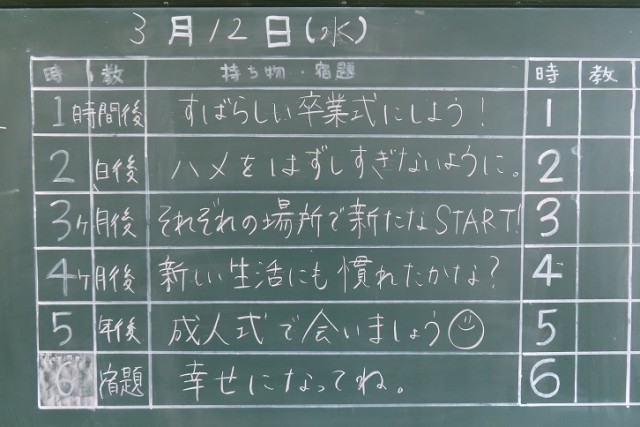 3月12日(水)
時 教 持ち物・宿題 時 教
1時間後 すばらしい卒業式にしよう! 1
2日後 ハメをはずしすぎないように。 2
3ヶ月後 それぞれの場所で新たなSTART! 3
4ヶ月後 新しい生活にも慣れたかな? 4
5年後 成人式で会いましょう 5
6 宿題 幸せになってね。 6